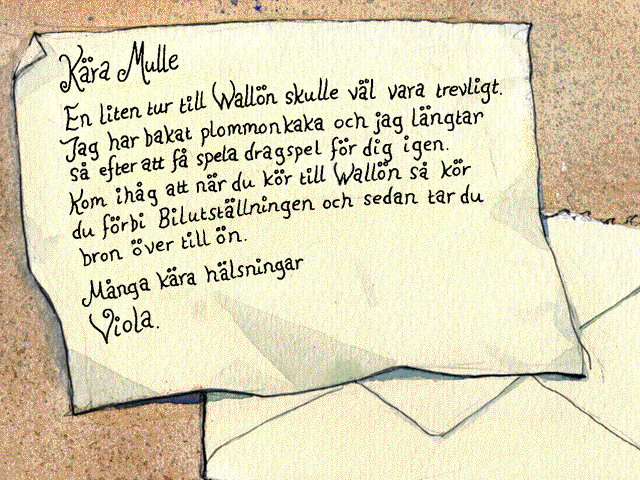 Kära Mulle
En liten tur till Wallön skulle väl vara trevligt.
Jag har bakat plommonkaka och jag längtar
så efter att få spela dragspel för dig igen.
Kom ihåg att när du kör till Wallön så kör
du förbi Bilutställningen och sedan tar du
bron över till ön.
Många kära hälsningar
Viola.